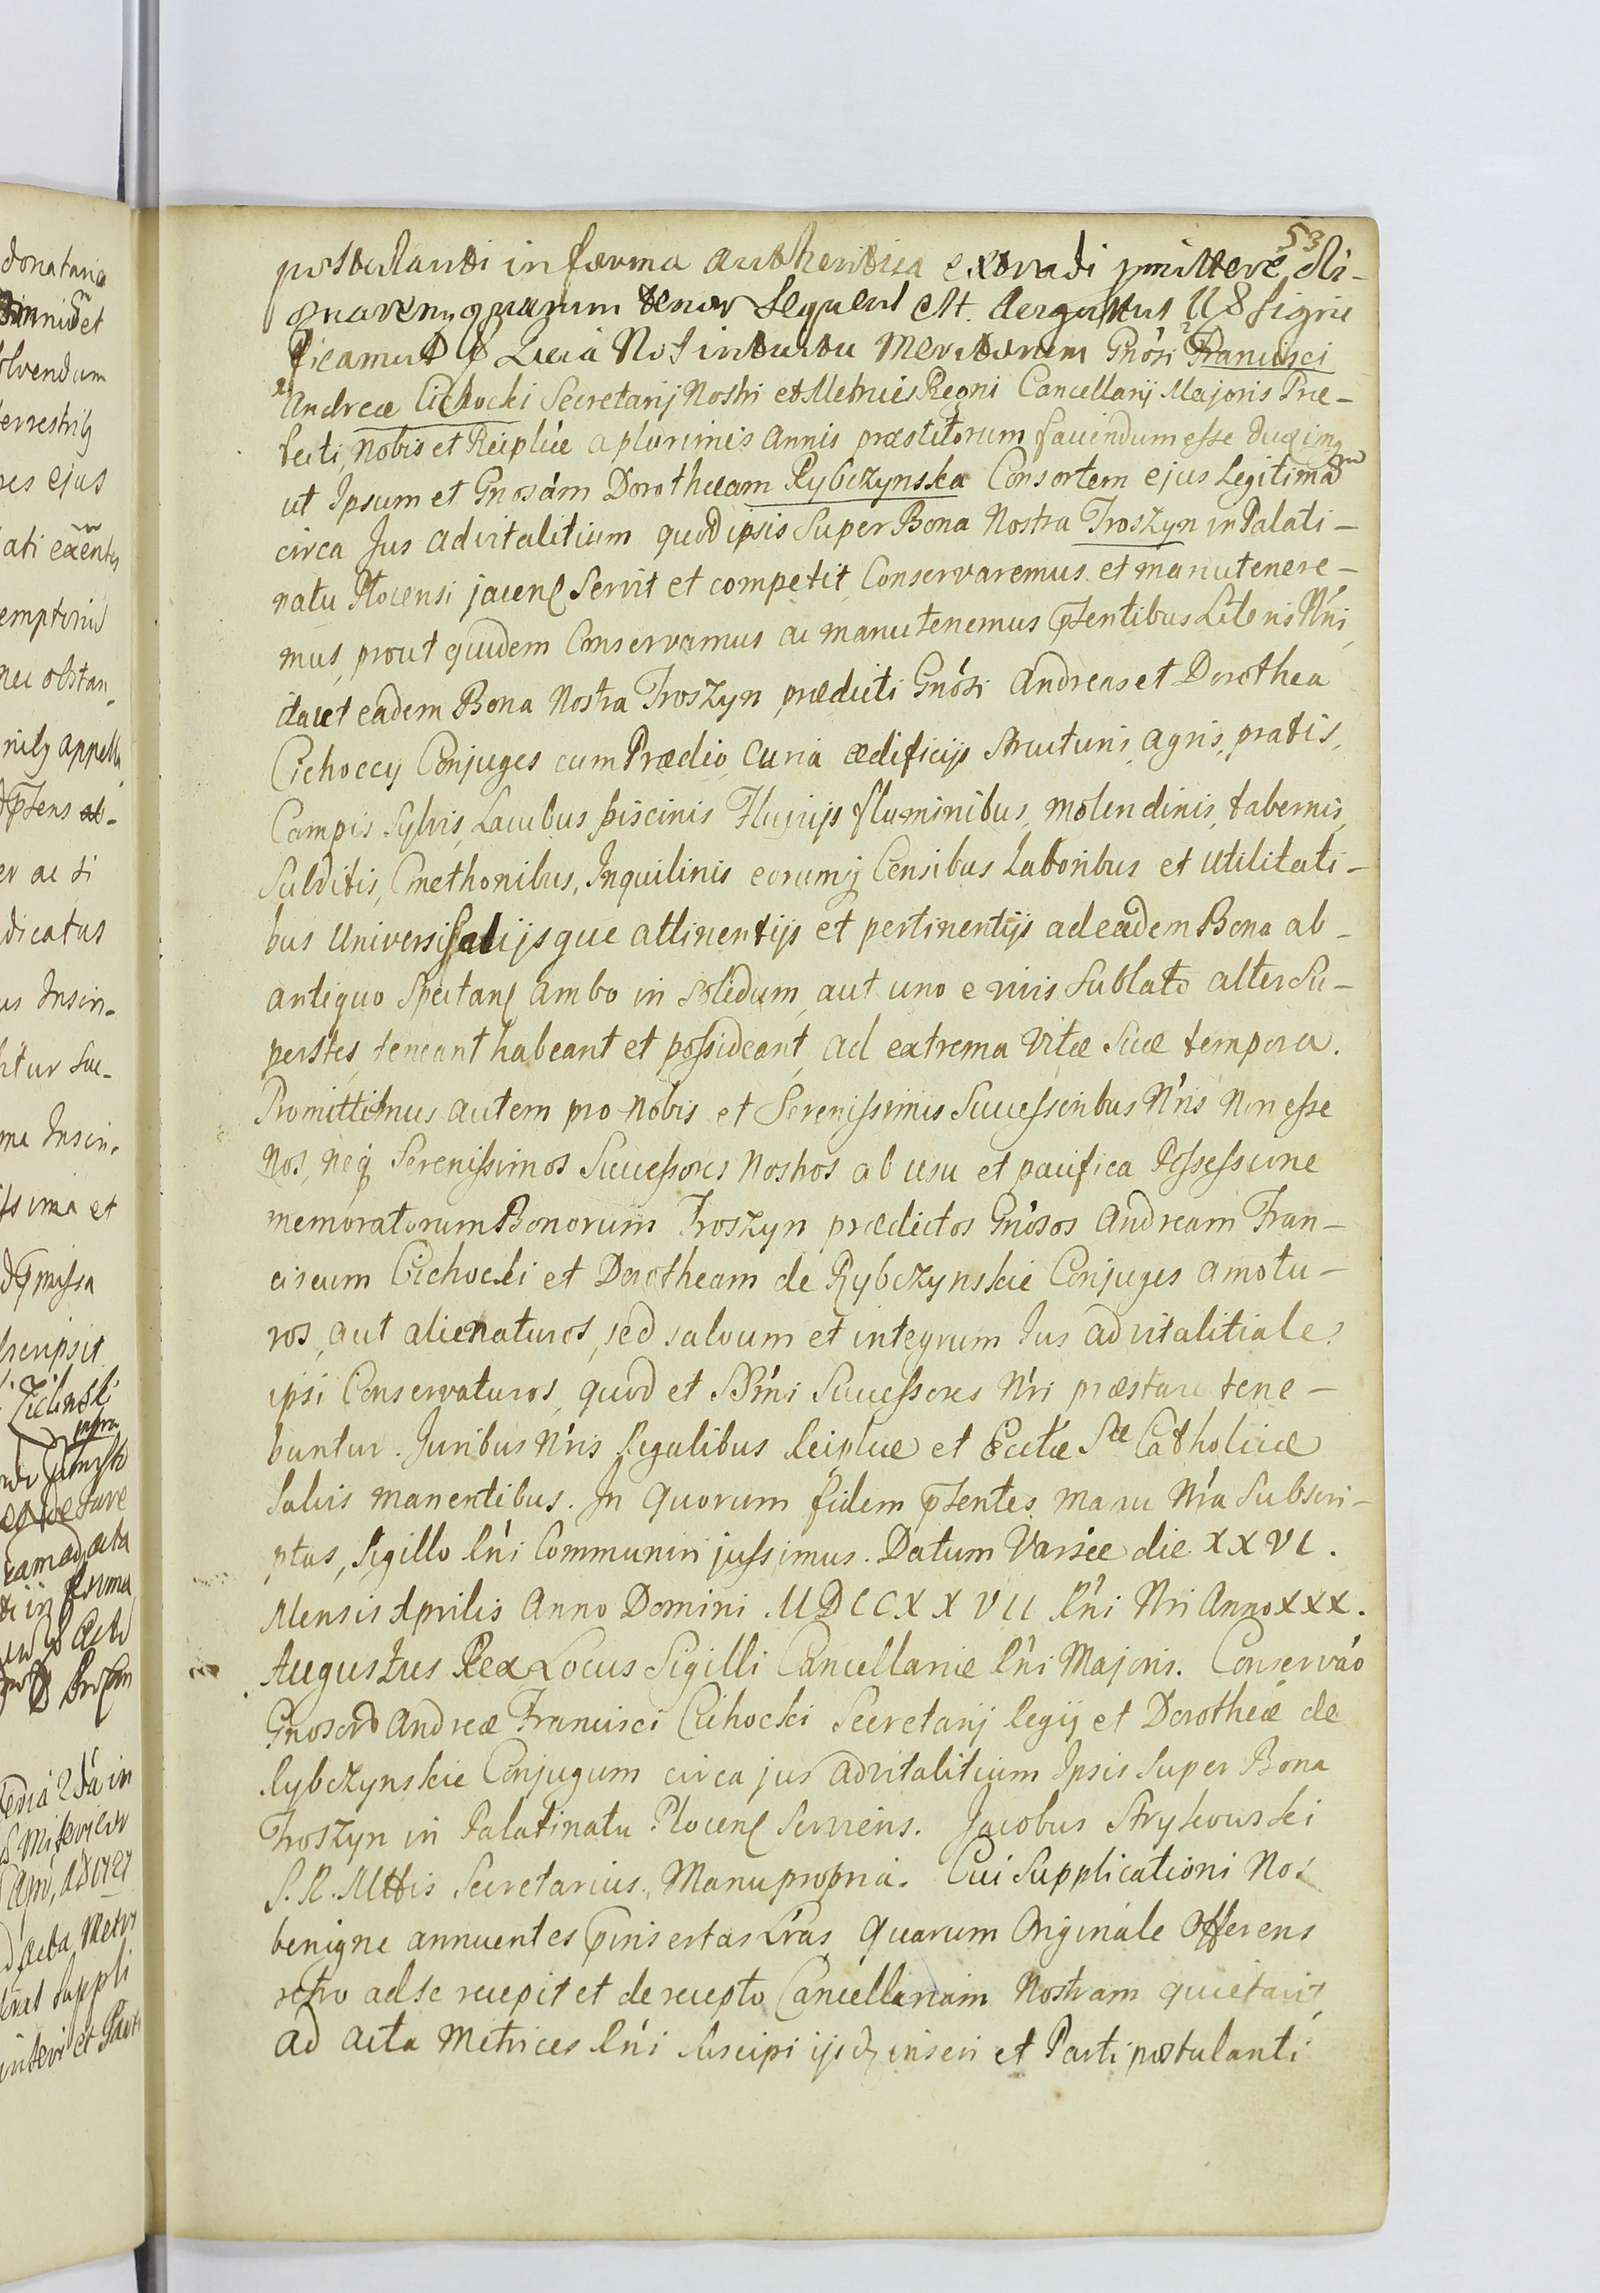 53
postulanti in forma authentica extradi pmittere di-
gnaremur quarum tenor sequens est. Augustus II & signi
ficamus &c Quia Nos intuitu Meritorum Gnósi Francisci
Andreæ Cichocki Secretarij Nostri et Metrices Regni Cancellarij Majoris Præ-
fecti, Nobis et Reiplicæ a plurimis Annis præstitorum favendum esse duximus
ut Ipsum et Gnosám Dorotheam Rybczynska Consortem ejus Legitimam
circa Jus advitalitium quod ipsis Super Bona Nostra Troszyn in Palati-
natu Plocensi jacen Servit et competit Conservaremus et manutenere-
mus, prout quidem Conservamus ac manutenemus pntentibus Literis Nris,
ita ut eadem Bona Nostra Troszyn prædicti Gnósi Andreas et Dorothea
Cichoccy Conjuges cum Prædio, Curia ædificijs structuris, agris, pratis,
Campis Sylvis, Lacubus piscinis Fluvijs fluminibus, molendinis, tabernis,
Subditis, Cmethonibus, Inquilinis eorumq Censibus Laboribus et Utilitati-
bus Universis alijsque attinentijs et pertinentijs ad eadem Bona ab-
antiquo Spectan ambo in solidum, aut uno e vivis sublato alter Su-
perstes, teneant habeant et possideant ad extrema Vitæ Suæ tempora.
Promittimus autem pro Nobis et Serenissimis Successoribus Nris Non esse
Nos, neq Serenissimos Successores Nostros ab usu et pacifica Possessione
memoratorum Bonorum Troszyn prædictos Gnósos Andream Fran-
ciscum Cichocki et Dorotheam de Rybczynskie Conjuges amotu-
ros, aut alienaturos, sed salvum et integrum Jus advitalitiale
ipsi Conservaturos, quod et SSmi Successores Nri præstare tene-
buntur. Juribus Nris Regalibus Reiplicæ et Ecclæ Stæ Catholicæ
Salvis manentibus. In quorum fidem pntentes manu Nra Subscri-
ptas, Sigillo Rni Communiri jussimus. Datum Varsiæ die XXVI.
Mensis Aprilis Anno Domini MDCCXXVII Rni Nri Anno XXX.
Augustus Rex Locus Sigilli Cancellariæ Rni Majoris. Conservao
Gnosor Andreæ Francisci Cichocki Secretarij Regij et Dorotheæ de
Rybczynskie Conjugum circa jus advitalitium Ipsis Super Bona
Troszyn in Palatinatu Plocen Serviens. Jacobus Strykowski
S. R. Mttis Secretarius, Manu propria. Cui Supplicationi Nos
benigne annuentes pinsertas Lras, quarum Originale Offerens
retro ad se recepit et de recepto Cancellariam Nostram quietavit,
ad Acta Metrices Rni suscipi ijsq inseri et Parti postulanti